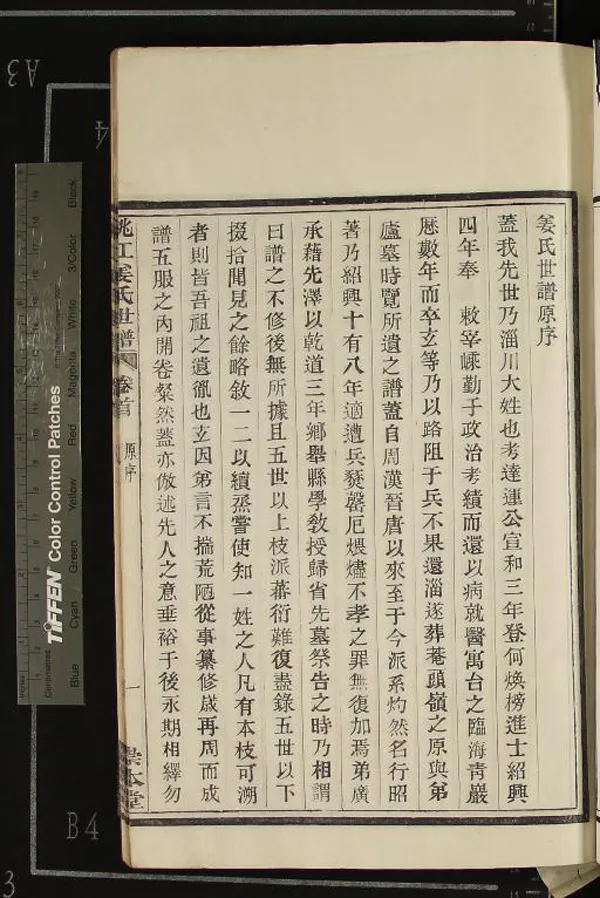 姜氏世譜原序
蓋我先世乃淄川大姓也考達連公宣和三年登何煥榜進士紹興
四年奉 敕宰嵊勤于政治考績而還以病就醫寓台之臨海青巖
歷數年而卒玄等乃以路阻于兵不果還淄遂葬菴頭嶺之原與弟
廬墓時覽所遺之譜蓋自周漢晉唐以來至于今派系灼然名行昭
著乃紹興十有八年適遭兵燹罄厄煨燼不孝之罪無復加焉弟廣
承藉先澤以乾道三年鄉舉縣學敎授歸省先墓祭告之時乃相謂
曰譜之不修後無所據且五世以上枝派蕃衍難復盡錄五世以下
掇拾聞見之餘略敘一二以續烝嘗使知一姓之人凡有本枝可溯
者則皆吾祖之遺胤也玄因弟言不揣荒陋從事纂修歲再周而成
譜五服之內開卷粲然蓋亦倣述先人之意垂裕于後永期相繹勿
姚江姜氏世譜
卷首
原序
一
崇本堂
A3
4
B4
3
TIFFEN Color Control Patches
Blue
Cyan
Green
Yellow
Red
Magenta
White
3/Color
Black
Centimetres
Inches